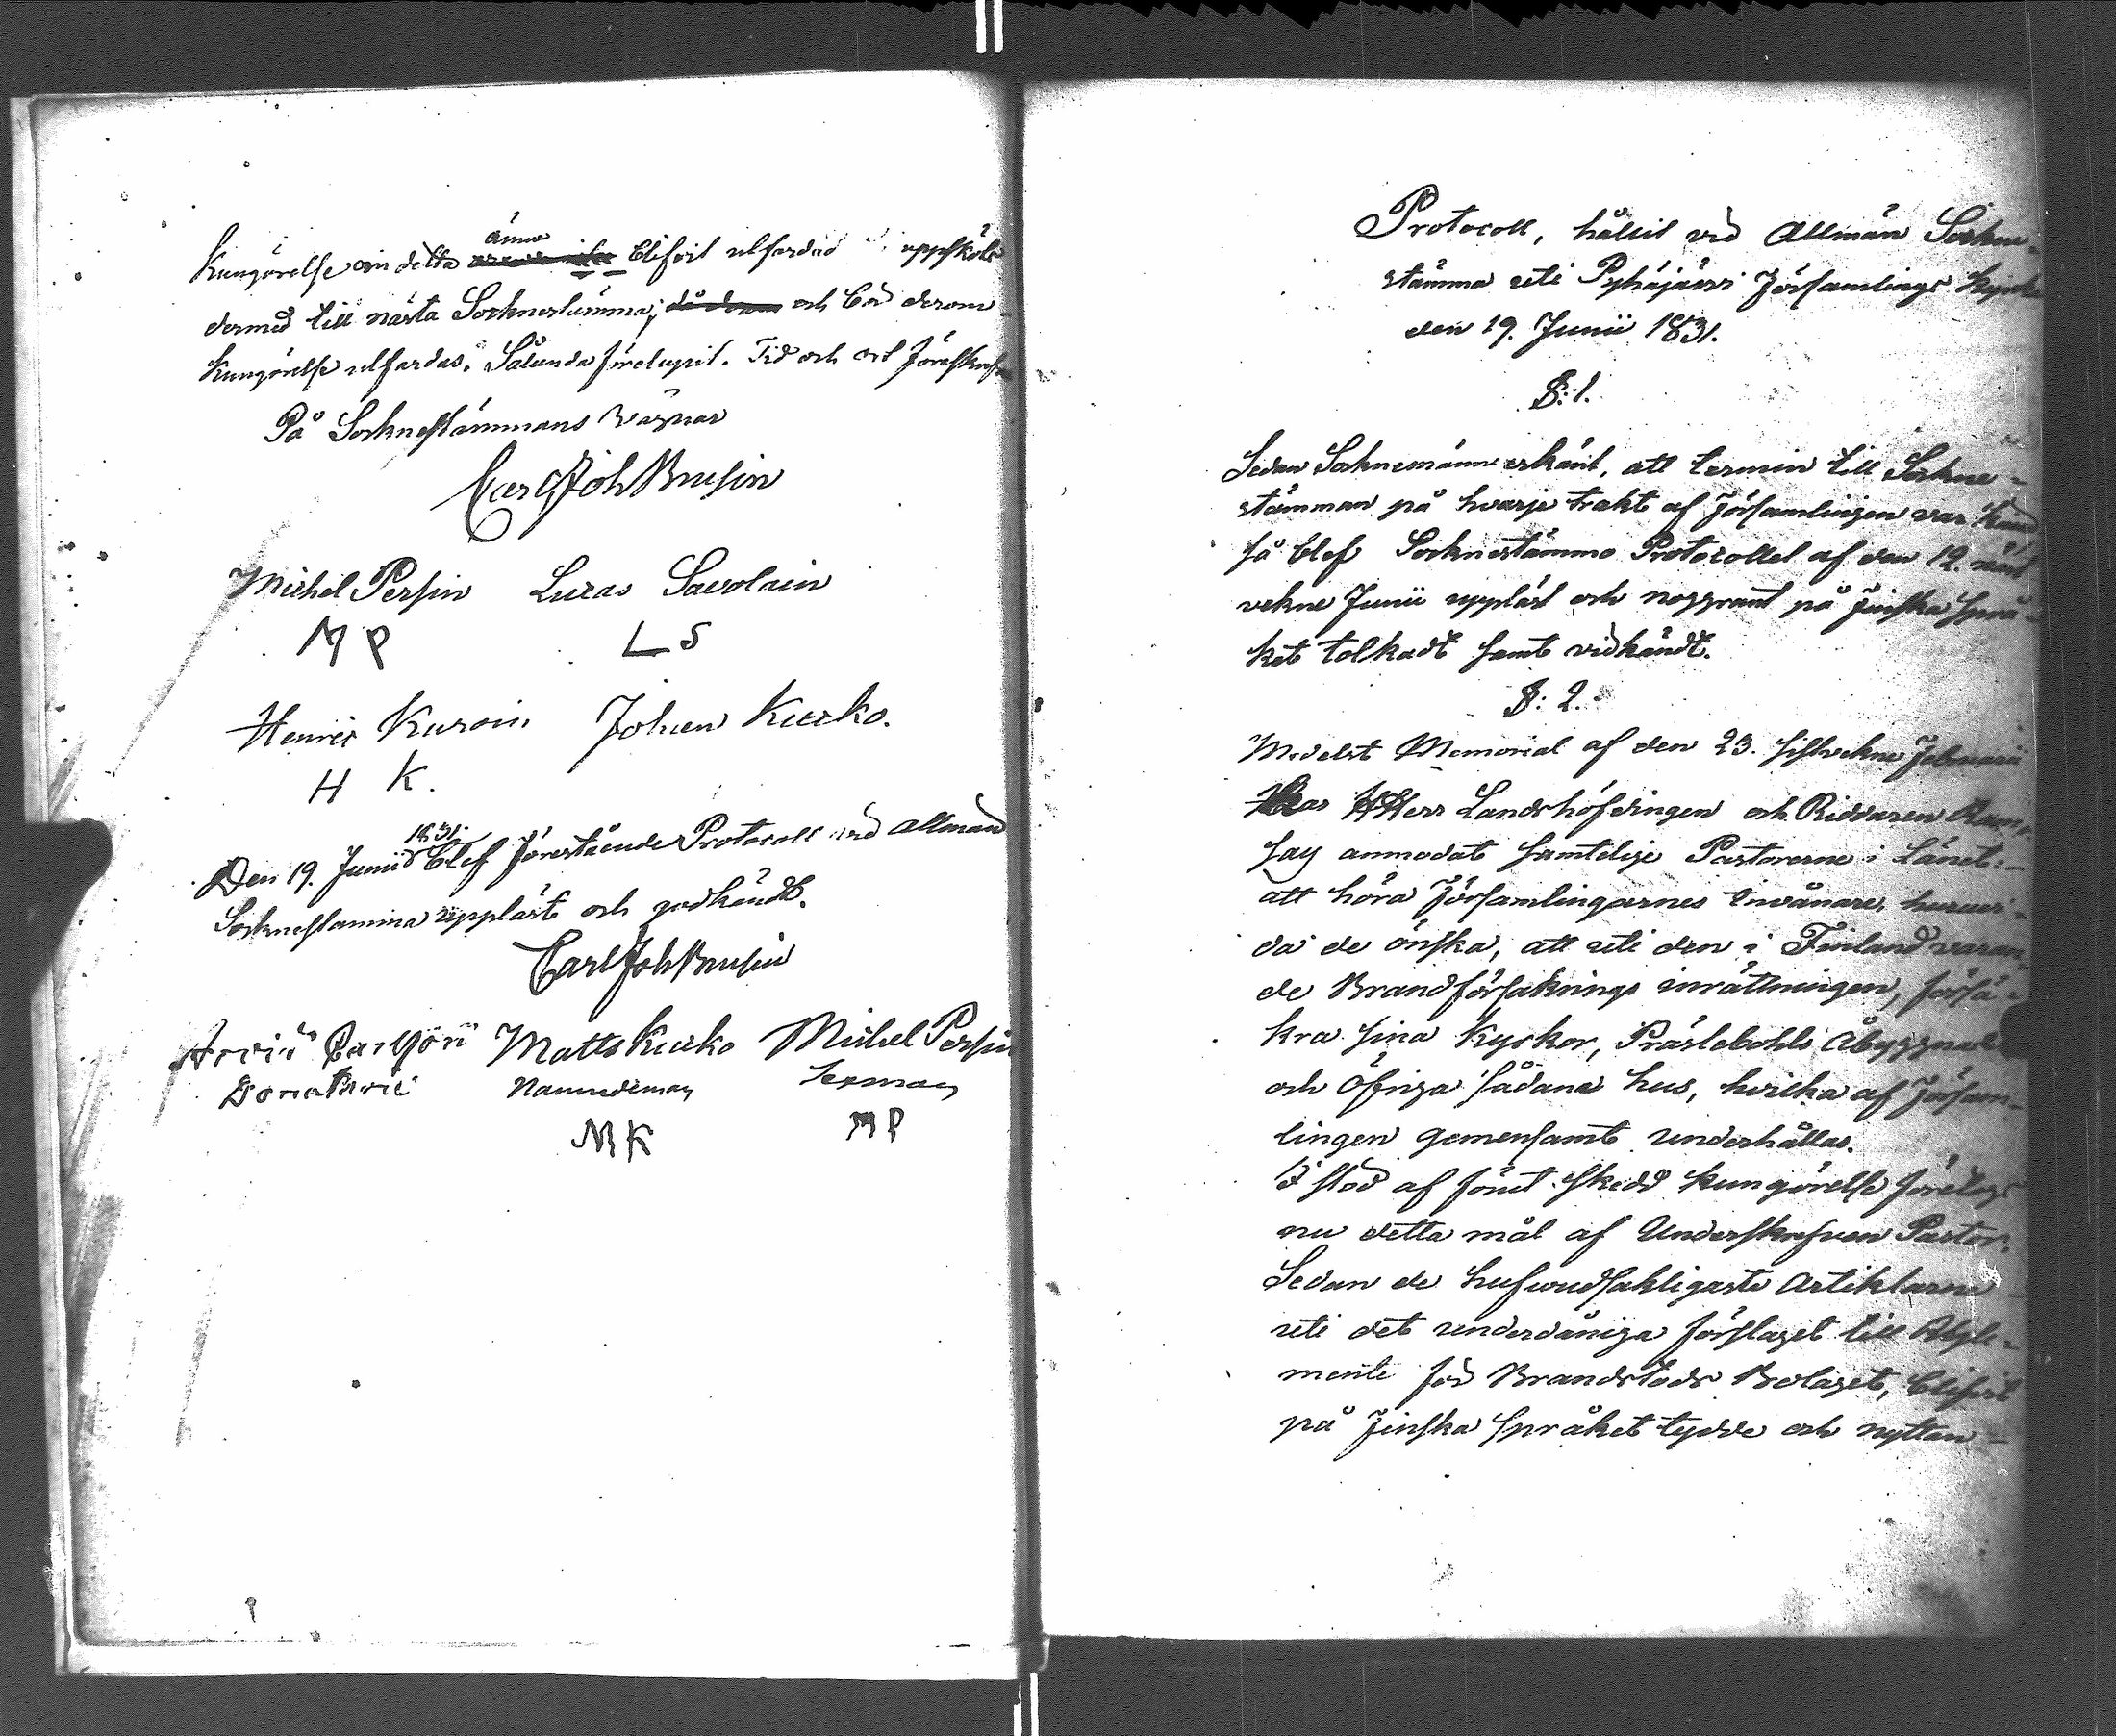 änno
Kungörelse om detta blifvit utfärdad uppsköts
dermed till nästa Socknestämma; och bör derom
Kungörelse utfärdas. Sålunda förelupit. Tid och ort föreskrefne
På Socknestämmans vägnar
Carl Joh Brusin
Michel Persin Lucas Savolain
M P L S
Henric Kuroin Johan Kurko.
H K.
1831.
Den 19. Junii blef förestående Protocoll vid allmän
Socknestämma uppläst och godkändt.
Carl Joh Brusin
Arvid Matts Kurko Michel Persin
Nämndeman Sexman
M K M P
Protocoll, hållit vid Allmän Sockne-
stämma uti Pyhäjärvi Församlings Kyrka
den 19. Junii 1831.
§: 1.
Sedan Socknemänn erkänt, att termin till Sockne-
stämman på hvarje trakt af Församlingen var känd
så blef Socknestämmo Protocollet af den 12. näst
vekne Junii uppläst och noggrant på finska språ-
ket tolkadt samt vidkändt.
§: 2.
Medelst Memorial af den 23. sistvekne Februarii
Har HHerr Landshöfdingen och Riddaren Ram-
say anmodat samtelige Pastorerne i länet:
att höra Församlingarnes Invånare, huruvi-
da de önska, att uti den i Finland varan-
de Brandförsäkrings inrättningen, försä-
kra sina Kyrkor, Prästebohls Åbyggnader
och öfriga sådana hus, hvilka af Försam-
lingen gemensamt underhållas.
I stöd af förut skedd kungörelse företogs
nu detta mål af Underskrefven Pastor.
Sedan de hufvudsakligaste Artiklarne
uti det underdåniga förslaget till Regle-
mente för Brandstods Bolaget, blifvit
på finska språket tydde och nyttan